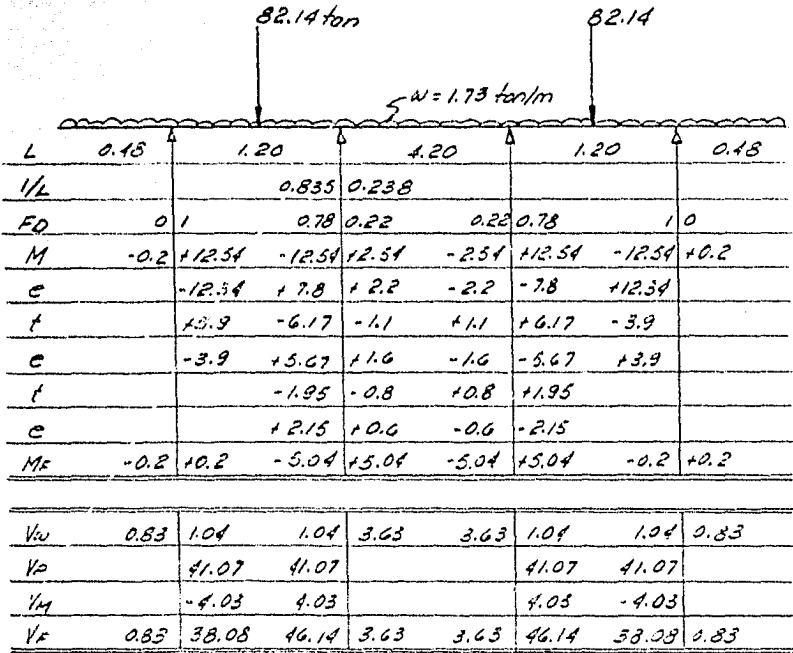 82.14 ton 82.14
w = 1.73 ton/m
L 0.48 1.20 4.20 1.20 0.48
1/L 0.835 0.238
FD 0 1 0.78 0.22 0.22 0.78 1 0
M -0.2 +12.54 -12.54 +2.54 -2.54 +12.54 -12.54 +0.2
e -12.34 +7.8 +2.2 -2.2 -7.8 +12.34
t +3.9 -6.17 -1.1 +1.1 +6.17 -3.9
e -3.9 +5.67 +1.6 -1.6 -5.67 +3.9
t -1.95 -0.8 +0.8 +1.95
e +2.15 +0.6 -0.6 -2.15
MF -0.2 +0.2 -5.04 +5.04 -5.04 +5.04 -0.2 +0.2
Vw 0.83 1.04 1.04 3.63 3.63 1.04 1.04 0.83
VP 41.07 41.07 41.07 41.07
VM -4.03 4.03 4.03 -4.03
VF 0.83 38.08 46.14 3.63 3.63 46.14 38.08 0.83